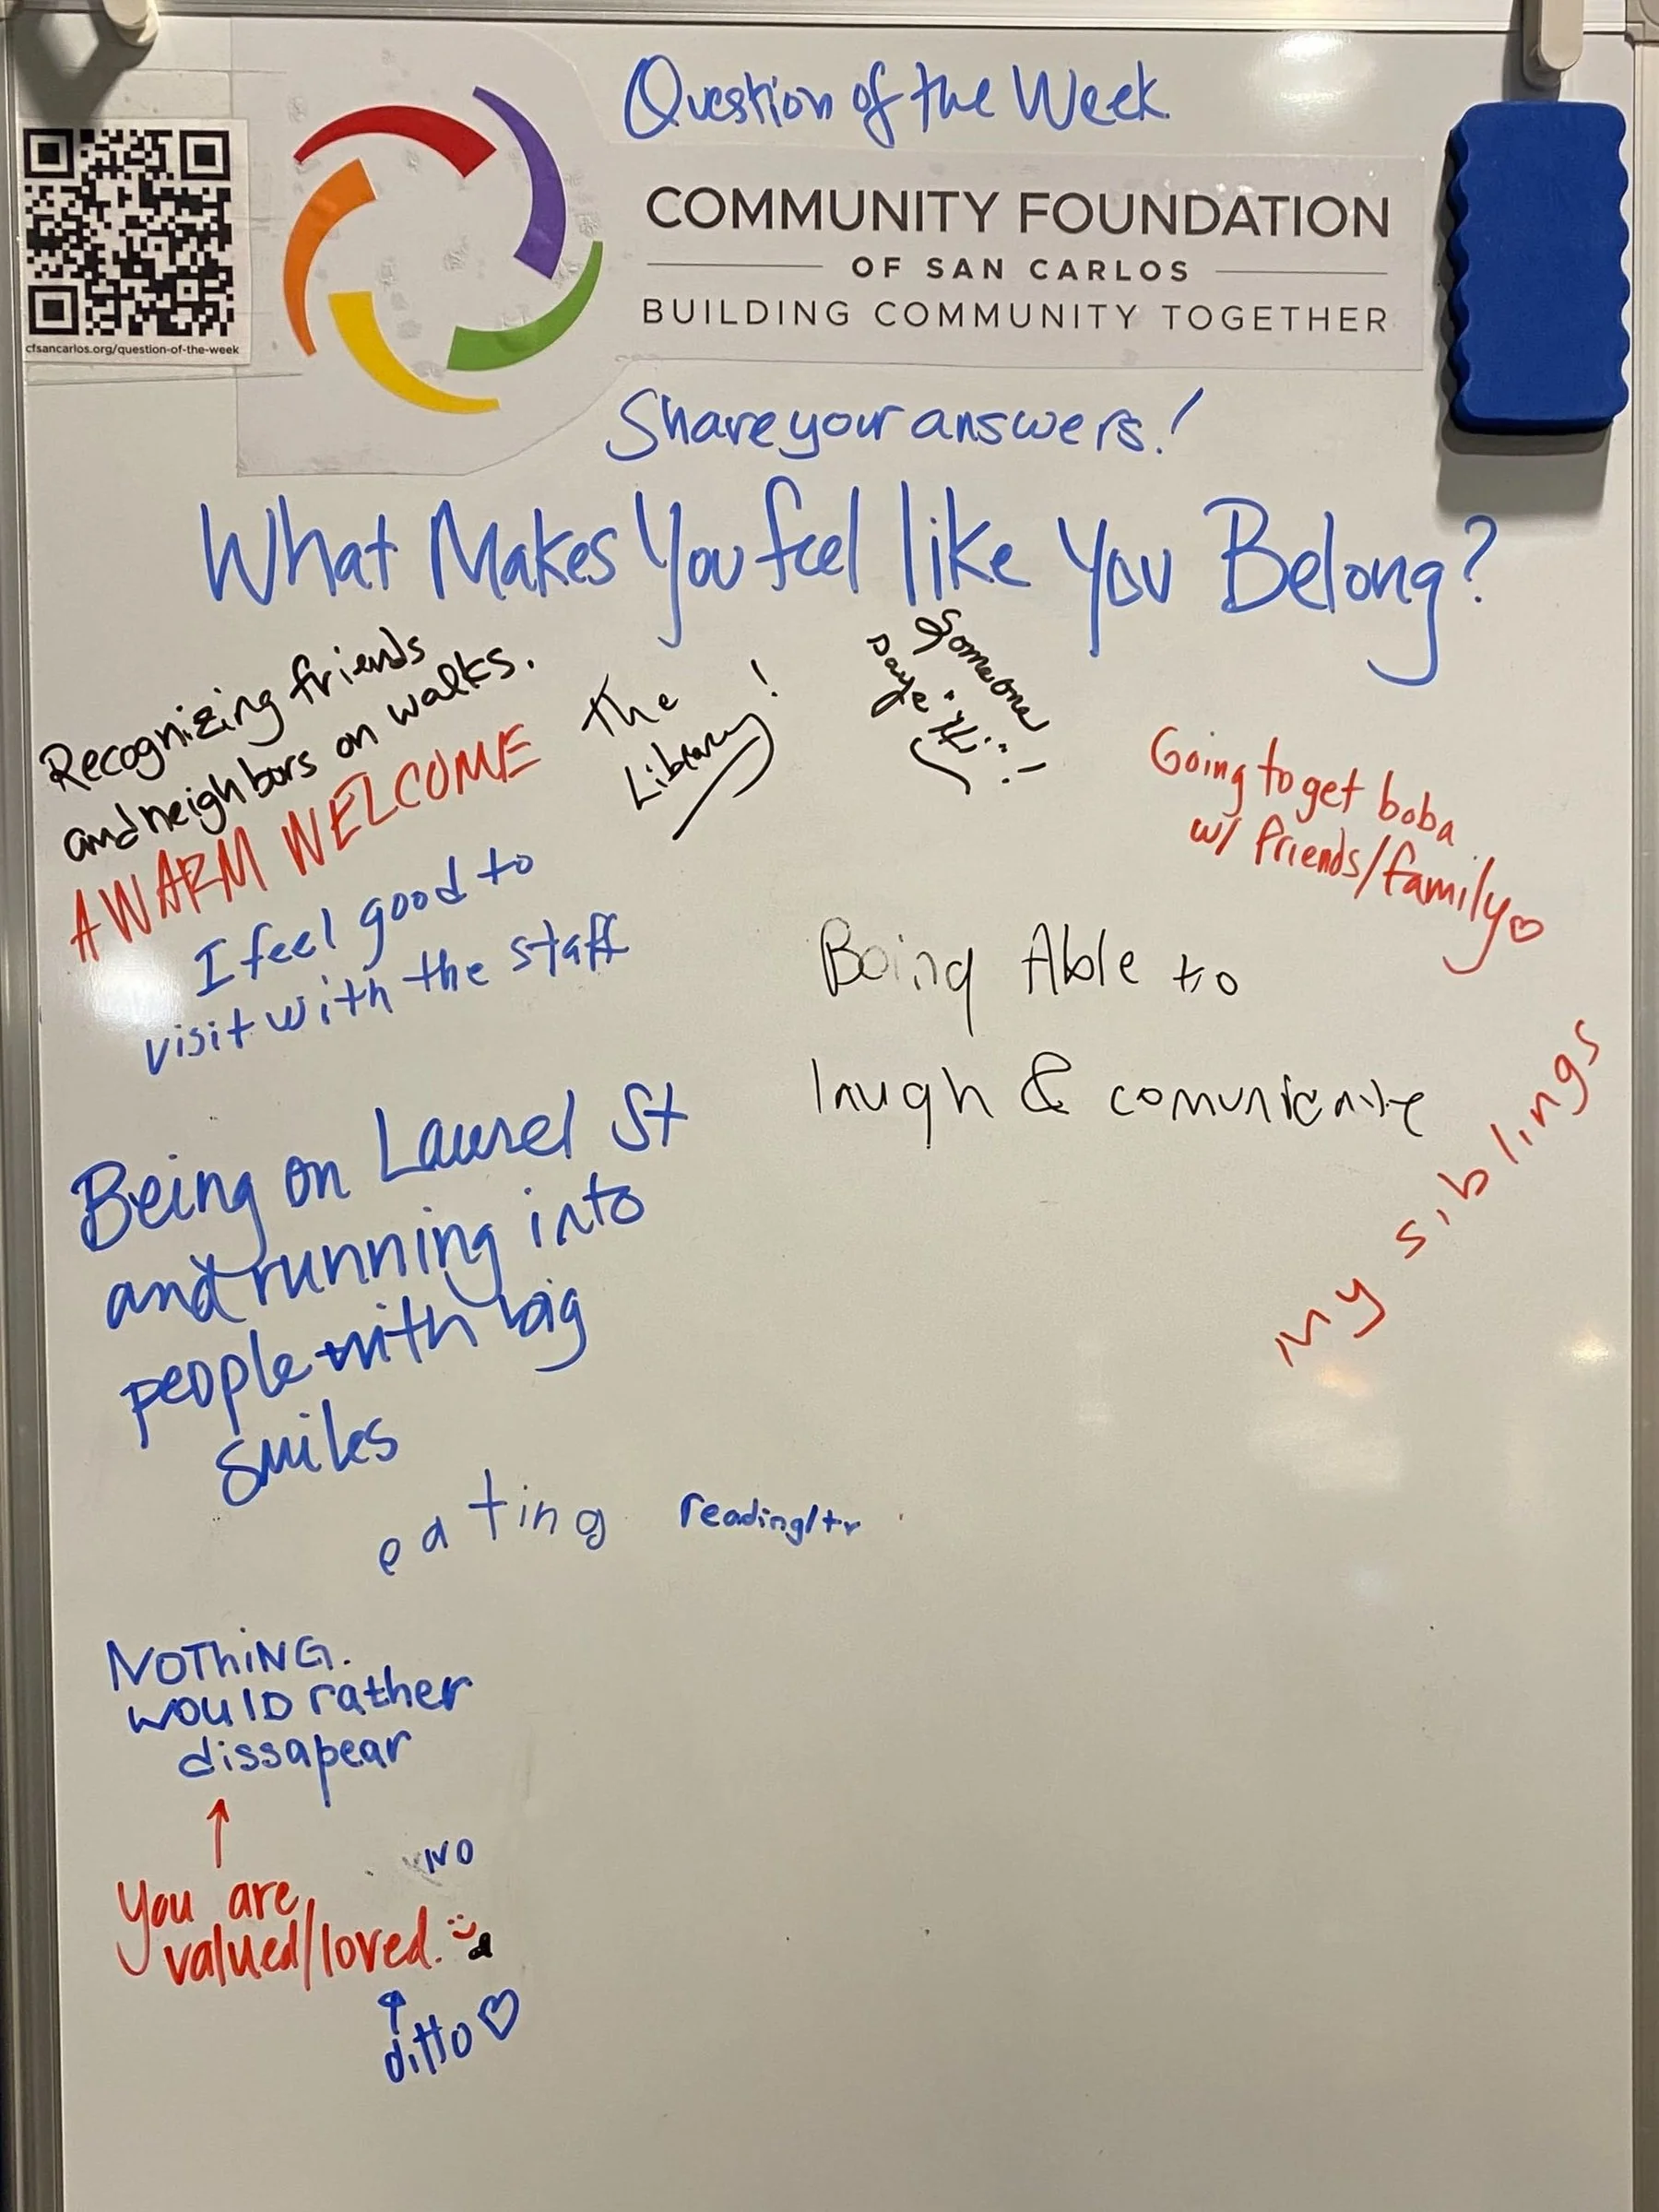 Question of the Week
COMMUNITY FOUNDATION
OF SAN CARLOS
BUILDING COMMUNITY TOGETHER
cfsancarlos.org/question-of-the-week
Share your answers!
What Makes You feel like You Belong?
Recognizing friends
and neighbors on walks.
A WARM WELCOME
The
Library!
Someone
says "Hi"!
Going to get boba
w/ friends/family
I feel good to
visit with the staff
Being Able to
laugh & comunicate
My siblings
Being on Laurel St
and running into
people with big
smiles
eating
reading/tv
NOTHiNG.
would rather
dissapear
NO
You are
valued/loved.
ditto